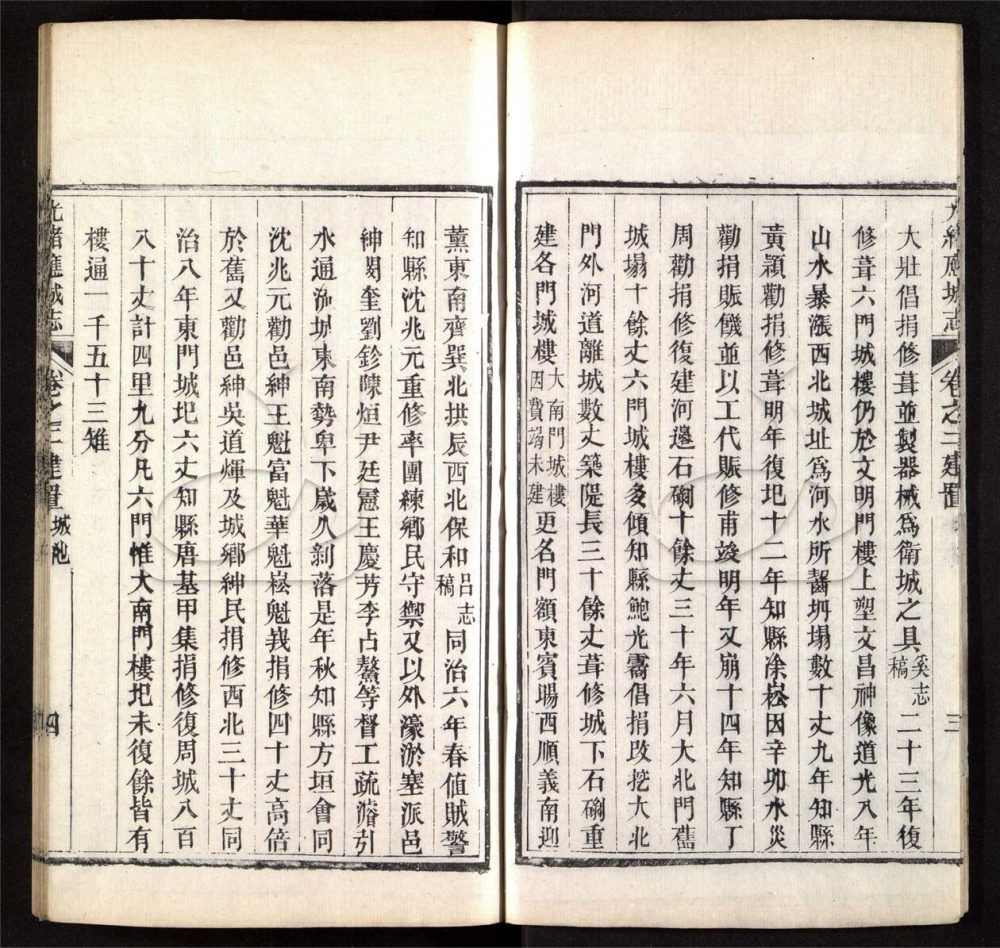 光緒應城志 卷之二建置 三
大壯倡捐修葺並製器械爲衛城之具奚志稿二十三年復
修葺六門城樓仍於文明門樓上塑文昌神像道光八年
山水暴漲西北城址爲河水所齧坍塌數十丈九年知縣
黃潁勸捐修葺明年復圯十二年知縣凃崧因辛卯水災
勸捐賑饑並以工代賑修甫竣明年又崩十四年知縣丁
周勸捐修復建河邊石磡十餘丈三十年六月大北門舊
城塌十餘丈六門城樓多傾知縣鮑光霱倡捐改挖大北
門外河道離城數丈築隄長三十餘丈葺修城下石磡重
建各門城樓大南門城樓因費竭未建更名門額東賓暘西順義南迎
薰東南齊巽北拱辰西北保和呂志稿同治六年春值賊警
知縣沈兆元重修率團練鄉民守禦又以外濠淤塞派邑
紳閔奎劉鉁陳烜尹廷憲王慶芳李占鰲等督工疏濬引
水通流城東南勢卑下歲久剝落是年秋知縣方垣會同
沈兆元勸邑紳王魁富魁華魁崧魁峩捐修四十丈高倍
於舊又勸邑紳吳道煇及城鄉紳民捐修西北三十丈同
治八年東門城圯六丈知縣唐基甲集捐修復周城八百
八十丈計四里九分凡六門惟大南門樓圯未復餘皆有
樓遍一千五十三雉
光緒應城志 卷之二建置 城池 四